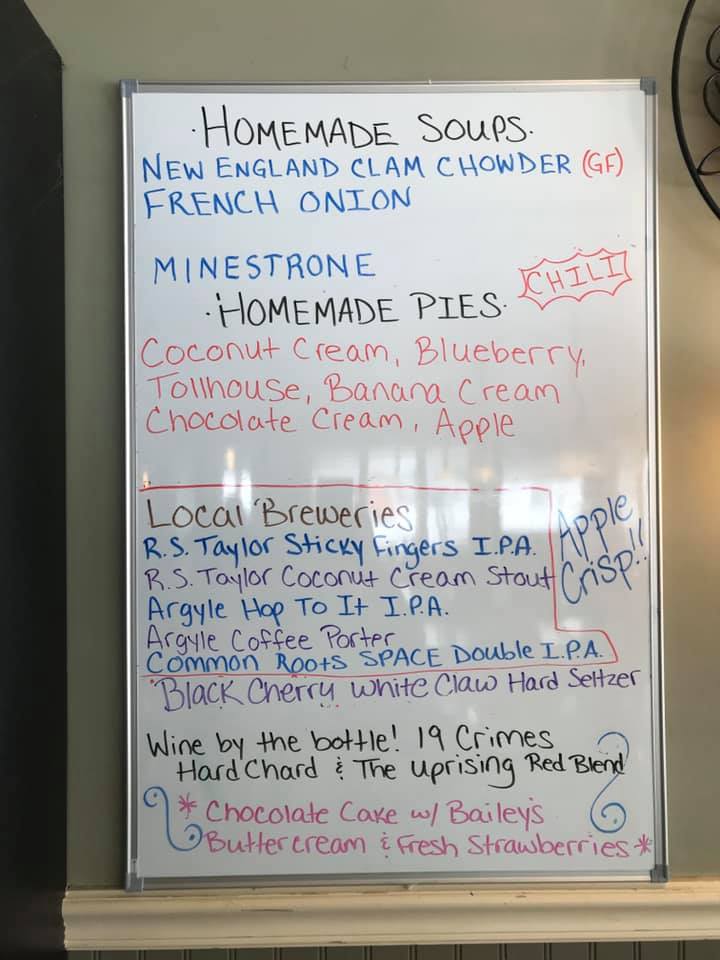 ·HOMEMADE SOUPS·
NEW ENGLAND CLAM CHOWDER (GF)
FRENCH ONION
MINESTRONE
CHILI
·HOMEMADE PIES·
Coconut Cream, Blueberry,
Tollhouse, Banana Cream
Chocolate Cream, Apple
Local Breweries
R.S. Taylor Sticky Fingers I.P.A.
R.S. Taylor Coconut Cream Stout
Argyle Hop To It I.P.A.
Argyle Coffee Porter
Common Roots SPACE Double I.P.A.
Apple
Crisp!!
Black Cherry White Claw Hard Seltzer
Wine by the bottle! 19 Crimes
Hard Chard & The Uprising Red Blend
* Chocolate Cake w/ Bailey's
Buttercream & Fresh Strawberries *